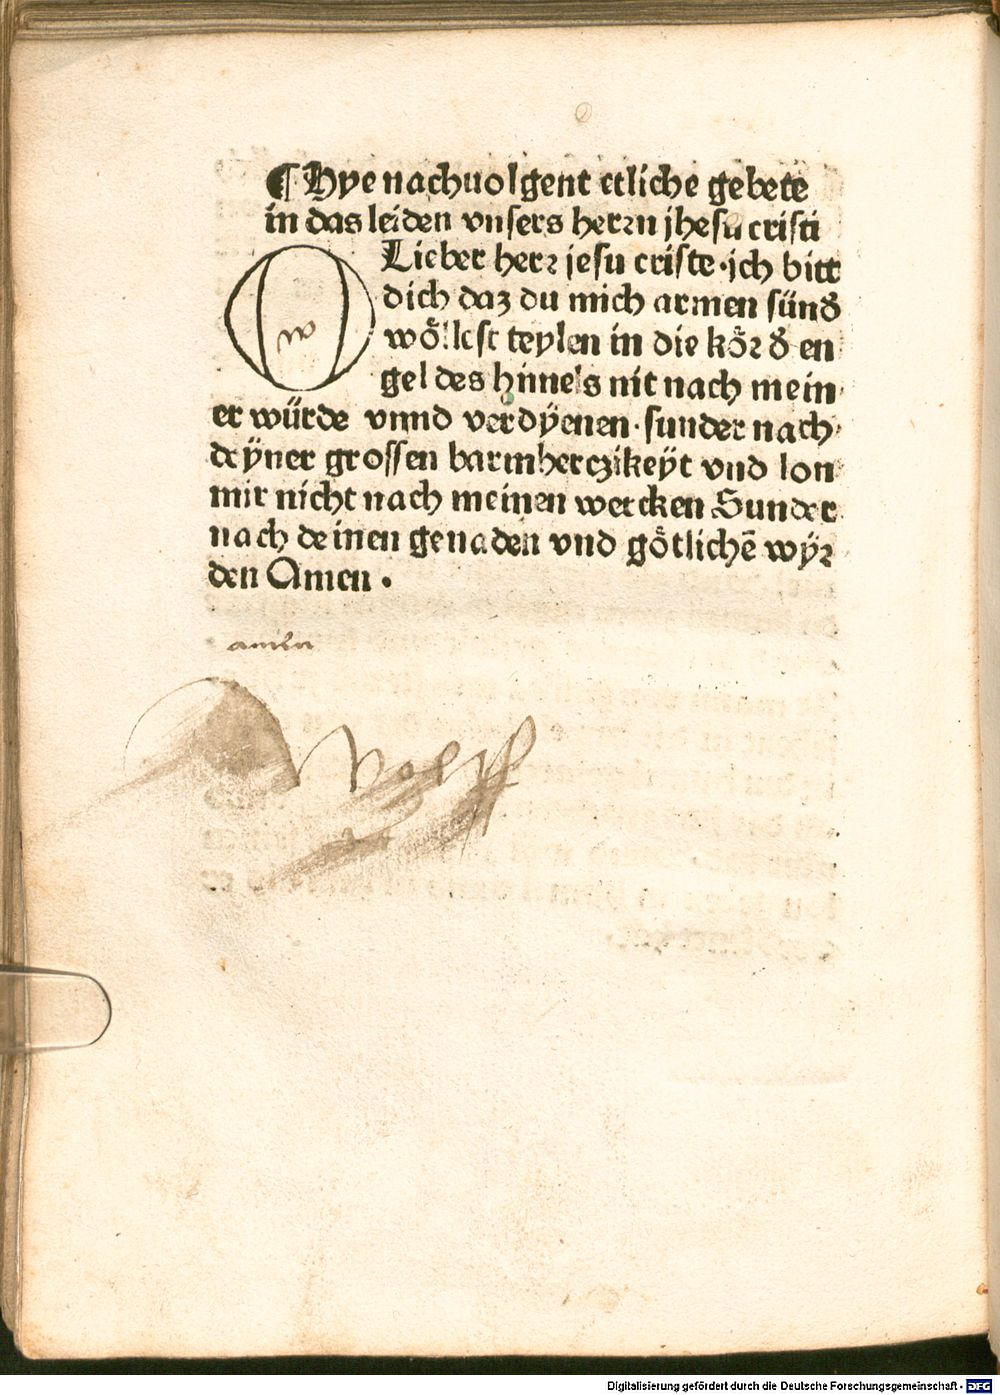 ¶ Hye nachuolgent etliche gebete
in das leiden vnsers herꝛn jhesu cristi
O Lieber herꝛ jesu criste·ich bitt
dich daz du mich armen sünd̕
wöllest teylen in die köꝛ d̕ en
gel des himels nit nach mein
er würde vnnd verdÿenen·sunder nach
deÿner grossen barmherczikeÿt vnd lon
mir nicht nach meinen wercken Sunder
nach deinen genaden vnd götlichē wÿꝛ
den Amen·
amen
Digitalisierung gefördert durch die Deutsche Forschungsgemeinschaft - DFG